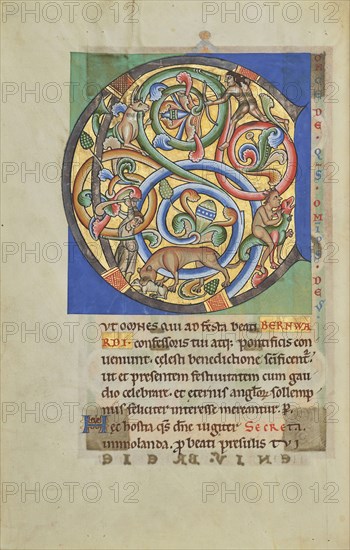 C
ONCEDE QS OMPS DEVS
VT OMNES QVI AD FESTA BEATI BERNWA
RDI. confessoris tui atq; pontificis con
veniunt. celesti benedictione scificent.
ut et presentem festivitatem cum gau
dio celebrare. et eternis angloꝝ sollemp
niis feliciter interesse mereantur. P.
Hec hostia qs dne iugiter Secreta.
immolanda. p beati presulis TVI
PHOTO12